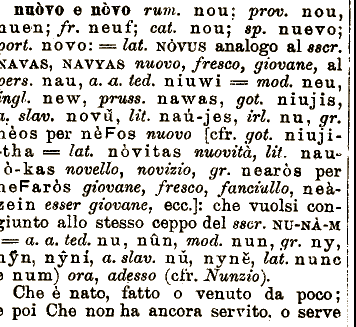 nuòvo e nòvo rum. nou; prov. nou,
nuen; fr. neuf; cat. nou; sp. nuevo;
port. novo: = lat. NÓVUS analogo al sscr.
NAVAS, NAVYAS nuovo, fresco, giovane, al
pers. nau, a. a. ted. niuwi = mod. neu,
ingl. new, pruss. nawas, got. niujis,
a. slav. novŭ, lit. naú-jes, irl. nu, gr.
nèos per nèFos nuovo [cfr. got. niuji-
tha = lat. nòvitas nuovità, lit. nau-
jò-kas novello, novizio, gr. nearòs per
neFaròs giovane, fresco, fanciullo, neà-
zein esser giovane, ecc.]: che vuolsi con-
giunto allo stesso ceppo del sscr. NU-NÀ-M
= a. a. ted. nu, nûn, mod. nun, gr. ny,
nŷn, nyní, a. slav. nŭ, nynĕ, lat. nunc
(e num) ora, adesso (cfr. Nunzio).
Che è nato, fatto o venuto da poco;
e poi Che non ha ancora servito, o serve